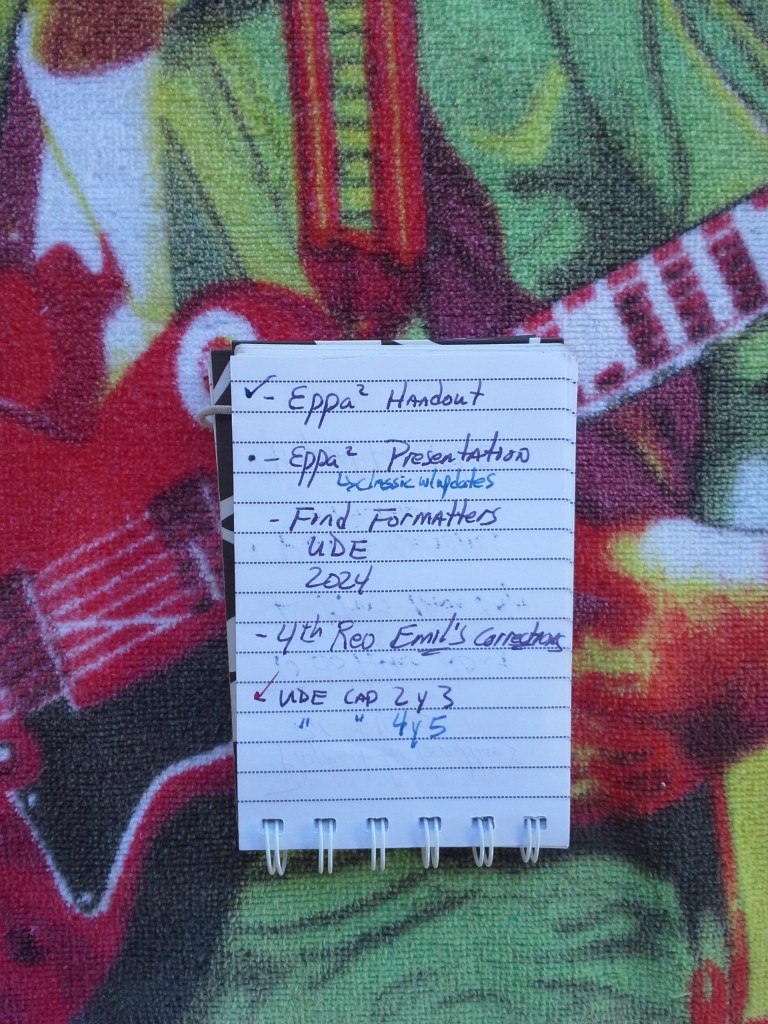 ✓ - Eppa² Handout
• - Eppa² Presentation
↳ classic w/updates
- Find Formatters
UDE
2024
- 4th Reo Emil's Corrections
✓ UDE CAP 2 y 3
" " 4 y 5